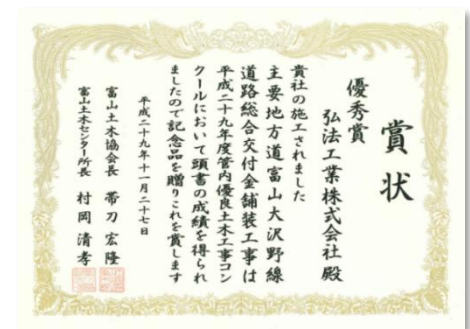 賞状
優秀賞
弘法工業株式会社殿
貴社の施工されました
主要地方道富山大沢野線
道路総合交付金舗装工事は
平成二十九年度管内優良土木工事コン
クールにおいて頭書の成績を得られ
ましたので記念品を贈りこれを賞します
平成二十九年十一月二十七日
富山土木協会長 帯刀宏隆
富山土木センター所長 村岡清孝